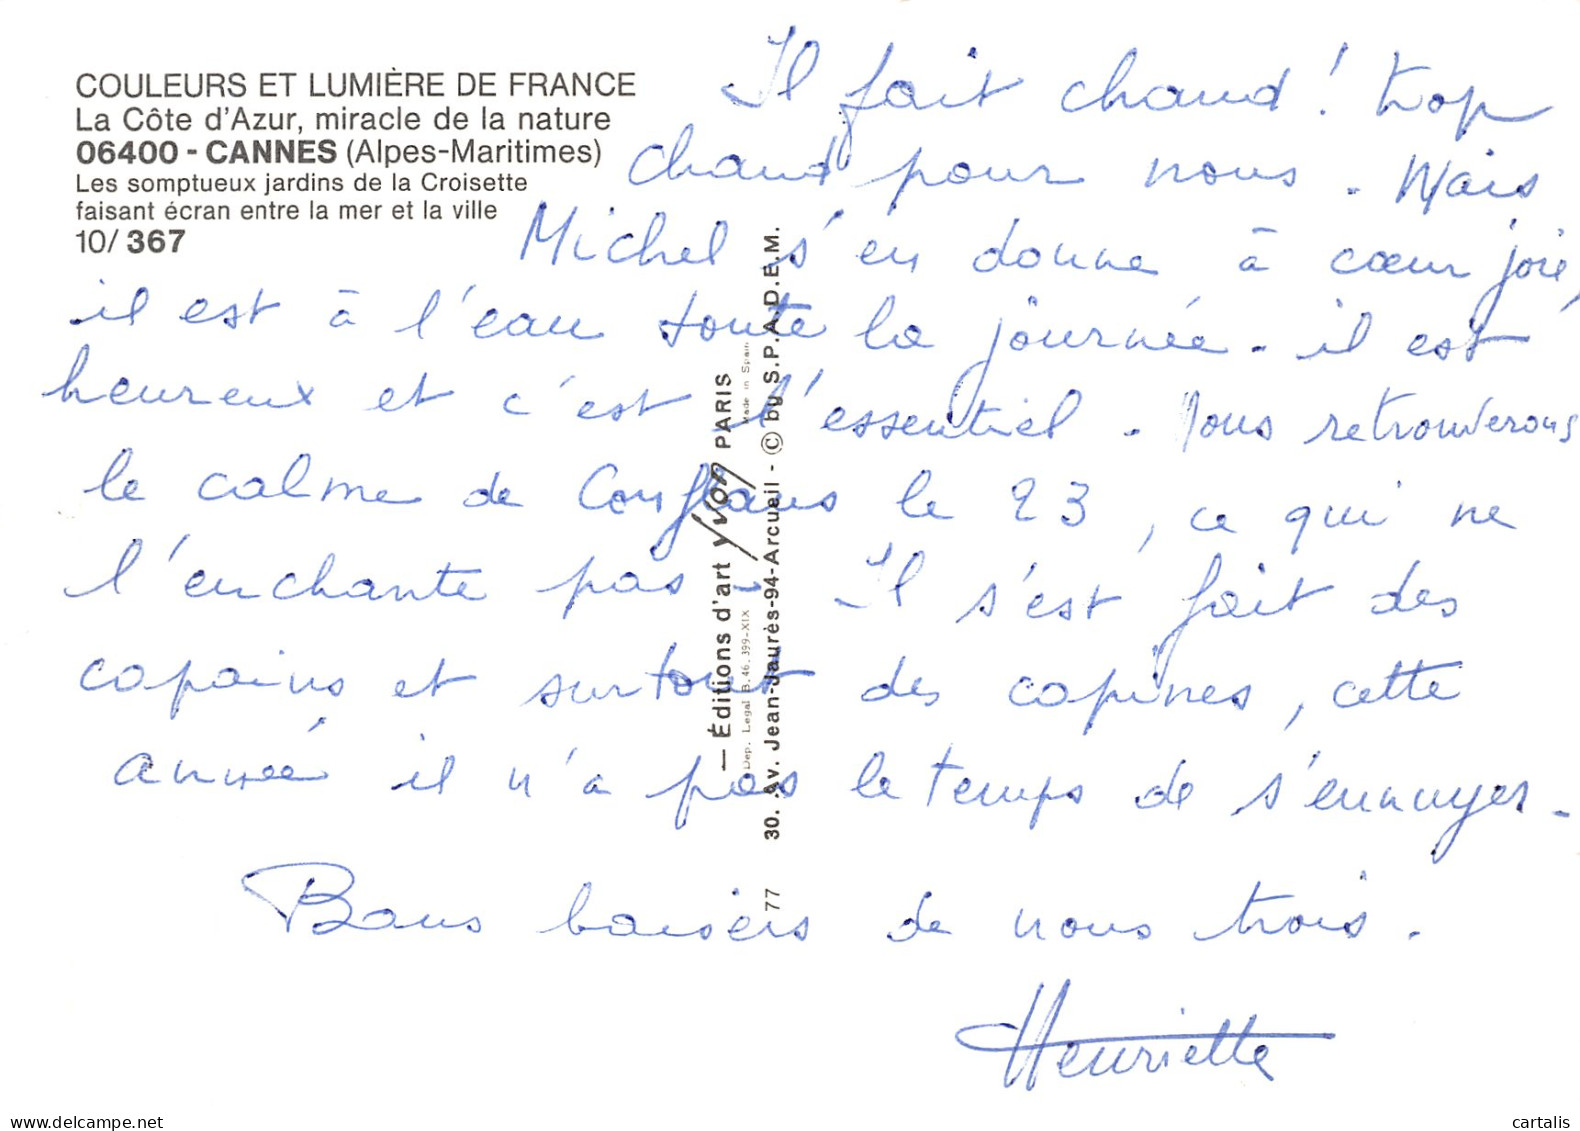 COULEURS ET LUMIÈRE DE FRANCE
La Côte d'Azur, miracle de la nature
06400 - CANNES (Alpes-Maritimes)
Les somptueux jardins de la Croisette
faisant écran entre la mer et la ville
10/ 367
Il fait chaud ! trop
chaud pour nous. Mais
Michel s'en donne à cœur joie,
il est à l'eau toute la journée - il est
heureux et c'est l'essentiel. Nous retrouverons
le calme de Conflans le 23, ce qui ne
l'enchante pas - Il s'est fait des
copains et surtout des copines, cette
année il n'a pas le temps de s'ennuyer.
Bons baisers de nous trois.
Henriette
— Éditions d'art yvon PARIS
Dep. Legal B. 46.399-XIX
Made in Spain
30. Av. Jean-Jaurès-94-Arcueil - © by S.P.A.D.E.M.
77
www.delcampe.net
cartalis